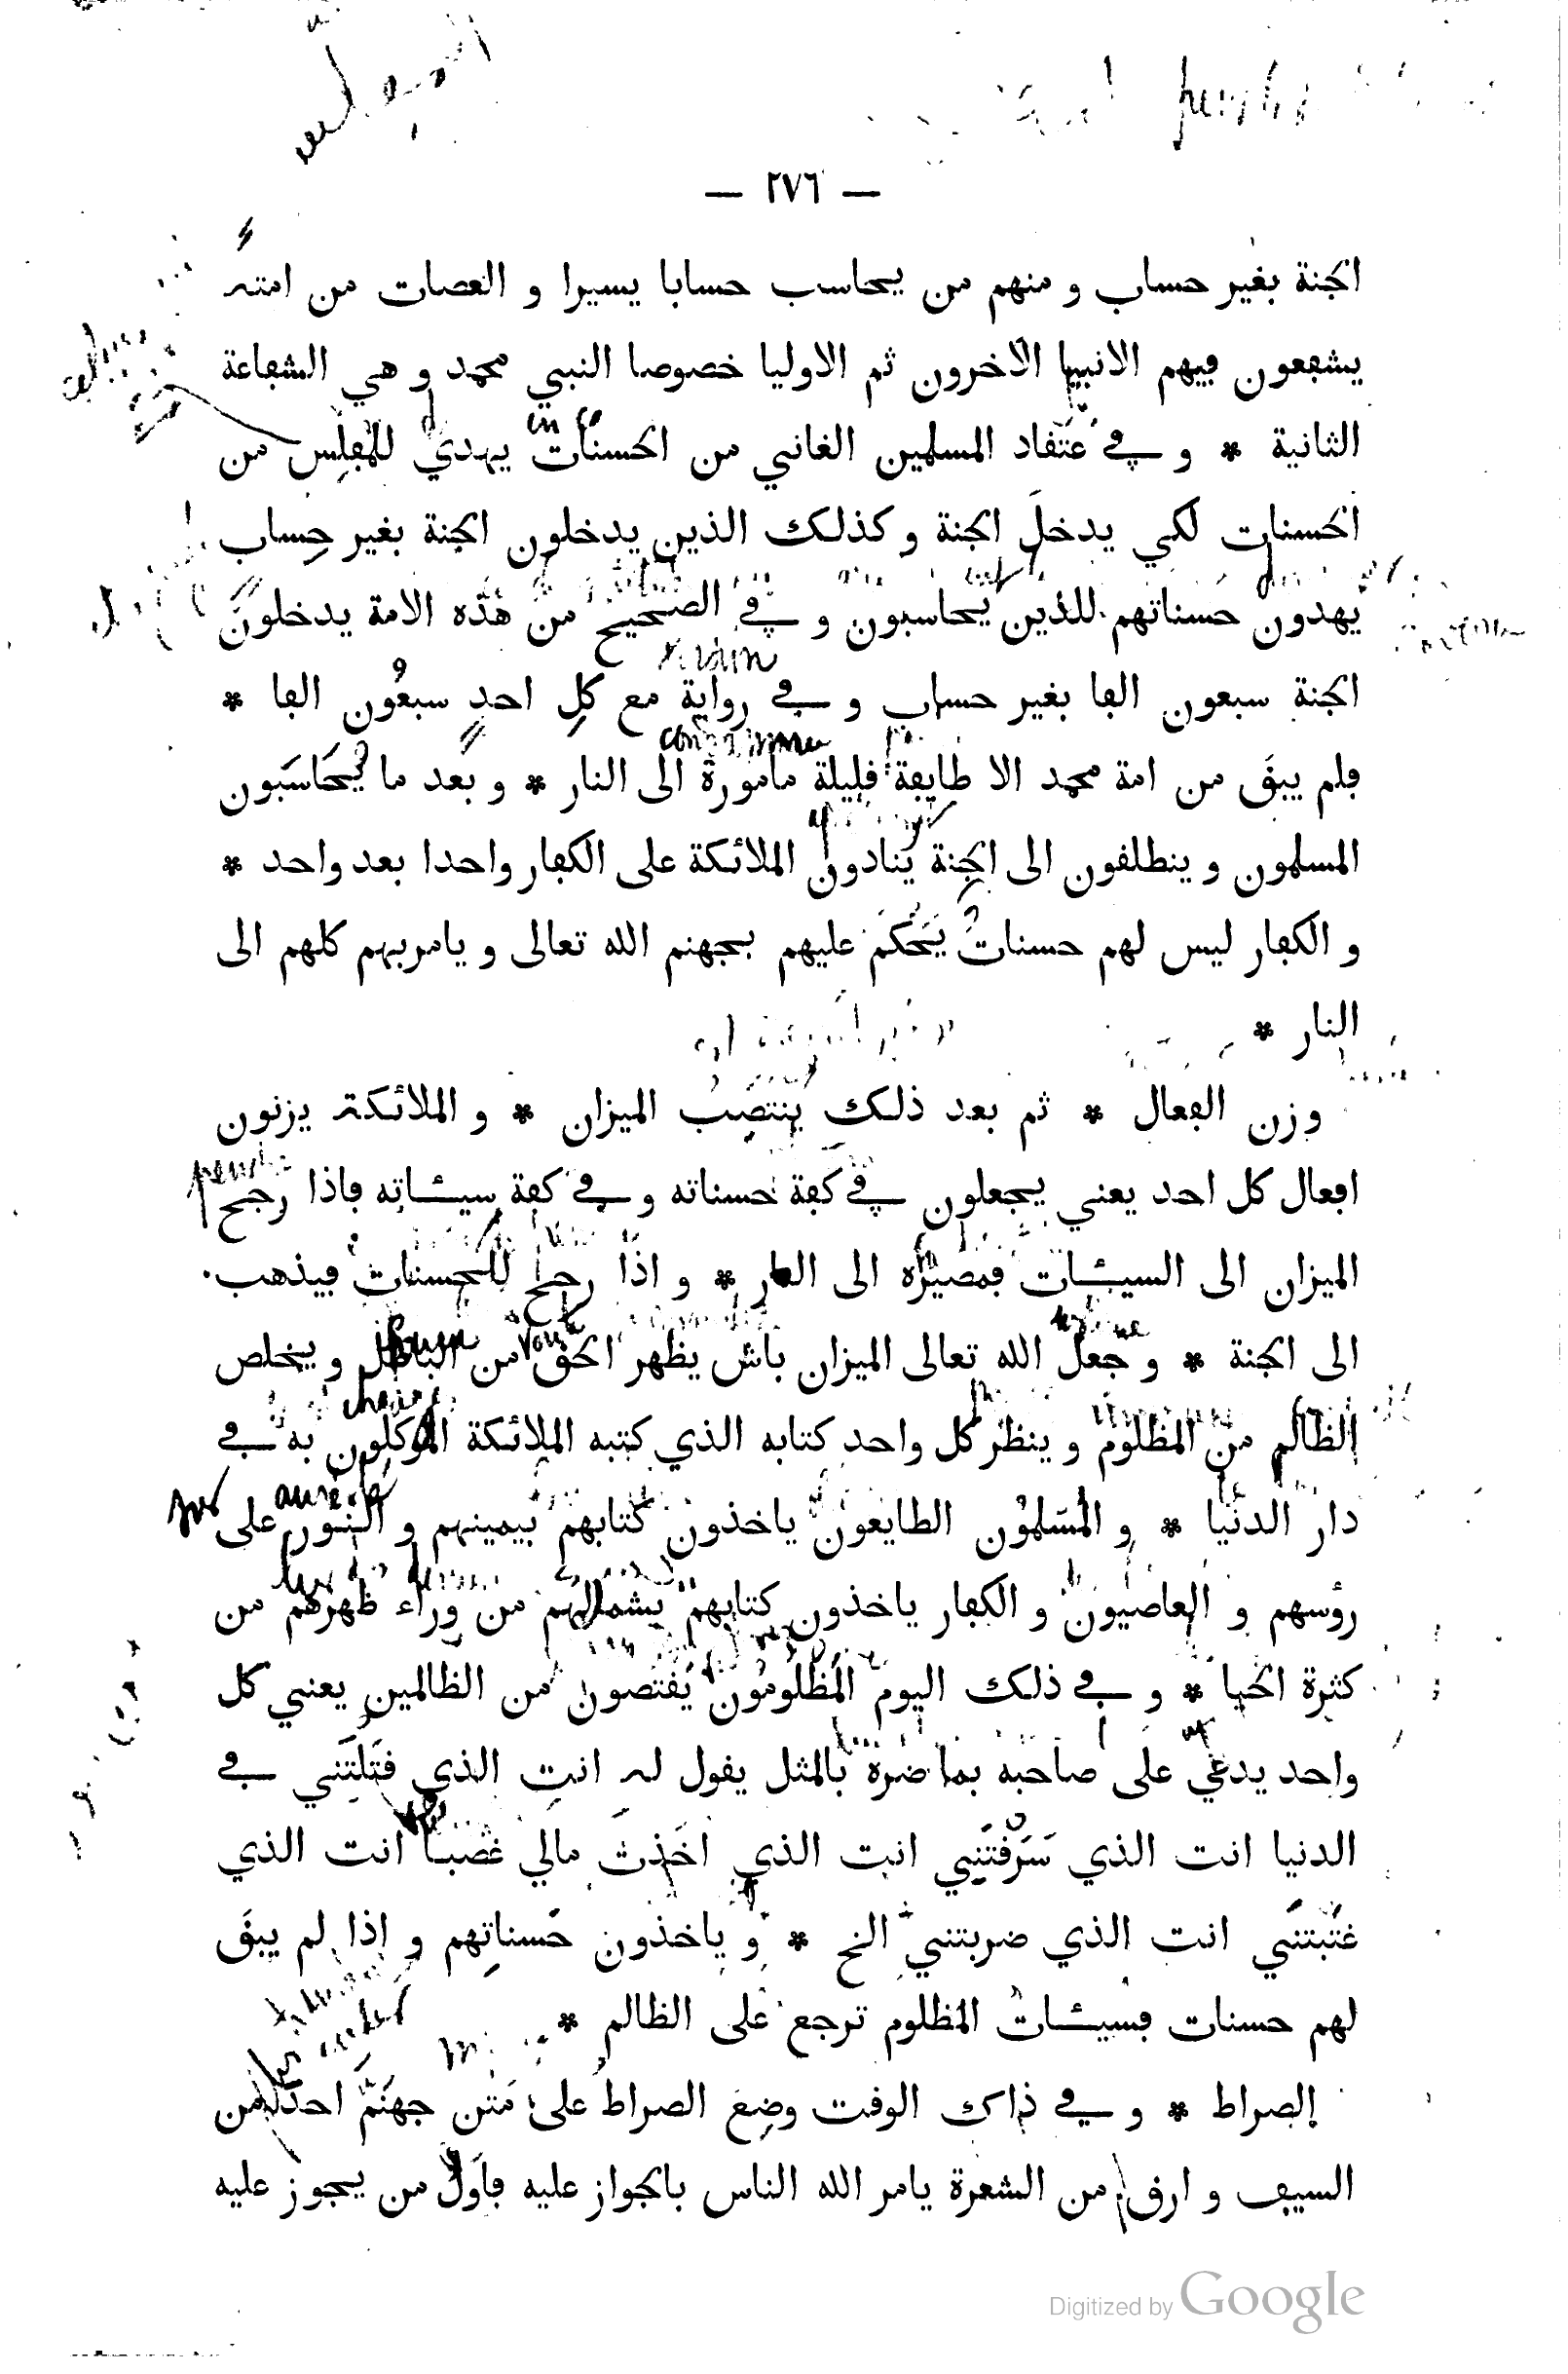 — ٢٧٦ —
الجنة بغير حساب و منهم من يحاسب حسابا يسيرا و العصات من امته
يشفعون فيهم الانبيا الآخرون ثم الاوليا خصوصا النبي محمد و هي الشفاعة
الثانية * و في عتقاد المسلمين الغاني من الحسنات يهدي للمفلس من
الحسنات لكي يدخل الجنة و كذلك الذين يدخلون الجنة بغير حساب
يهدون حسناتهم للذين يحاسبون و في الصحيح من هذه الامة يدخلون
الجنة سبعون الفا بغير حساب و في رواية مع كل احد سبعون الفا *
فلم يبق من امة محمد الا طايفة قليلة مامورة الى النار * و بعد ما يحاسبون
المسلمون و ينطلقون الى الجنة ينادون الملائكة على الكفار واحدا بعد واحد *
و الكفار ليس لهم حسنات يحكم عليهم بجهنم الله تعالى و يامر بهم كلهم الى
النار *
وزن الفعال * ثم بعد ذلك ينتصب الميزان * و الملائكة يزنون
افعال كل احد يعني يجعلون في كفة حسناته و في كفة سيئاته فاذا رجح
الميزان الى السيئات فمصيره الى النار * و اذا رجح للحسنات فيذهب
الى الجنة * و جعل الله تعالى الميزان باش يظهر الحق من الباطل و يخلص
الظالم من المظلوم و ينظر كل واحد كتابه الذي كتبه الملائكة الموكلون به في
دار الدنيا * و المسلمون الطايعون ياخذون كتابهم بيمينهم و النور على
رؤسهم و العاصيون و الكفار ياخذون كتابهم بشمالهم من وراء ظهرهم من
كثرة الحيا * و في ذلك اليوم المظلومون يقتصون من الظالمين يعني كل
واحد يدعي على صاحبه بما ضره بالمثل يقول له انت الذي قتلتني في
الدنيا انت الذي سرقتني انت الذي اخذت مالي غصبا انت الذي
غتبتني انت الذي ضربتني الخ * و ياخذون حسناتهم و اذا لم يبق
لهم حسنات فسيئات المظلوم ترجع على الظالم *
الصراط * و في ذاك الوقت وضع الصراط على متن جهنم احد من
السيف و ارق من الشعرة يامر الله الناس بالجواز عليه فاول من يجوز عليه
Digitized by Google